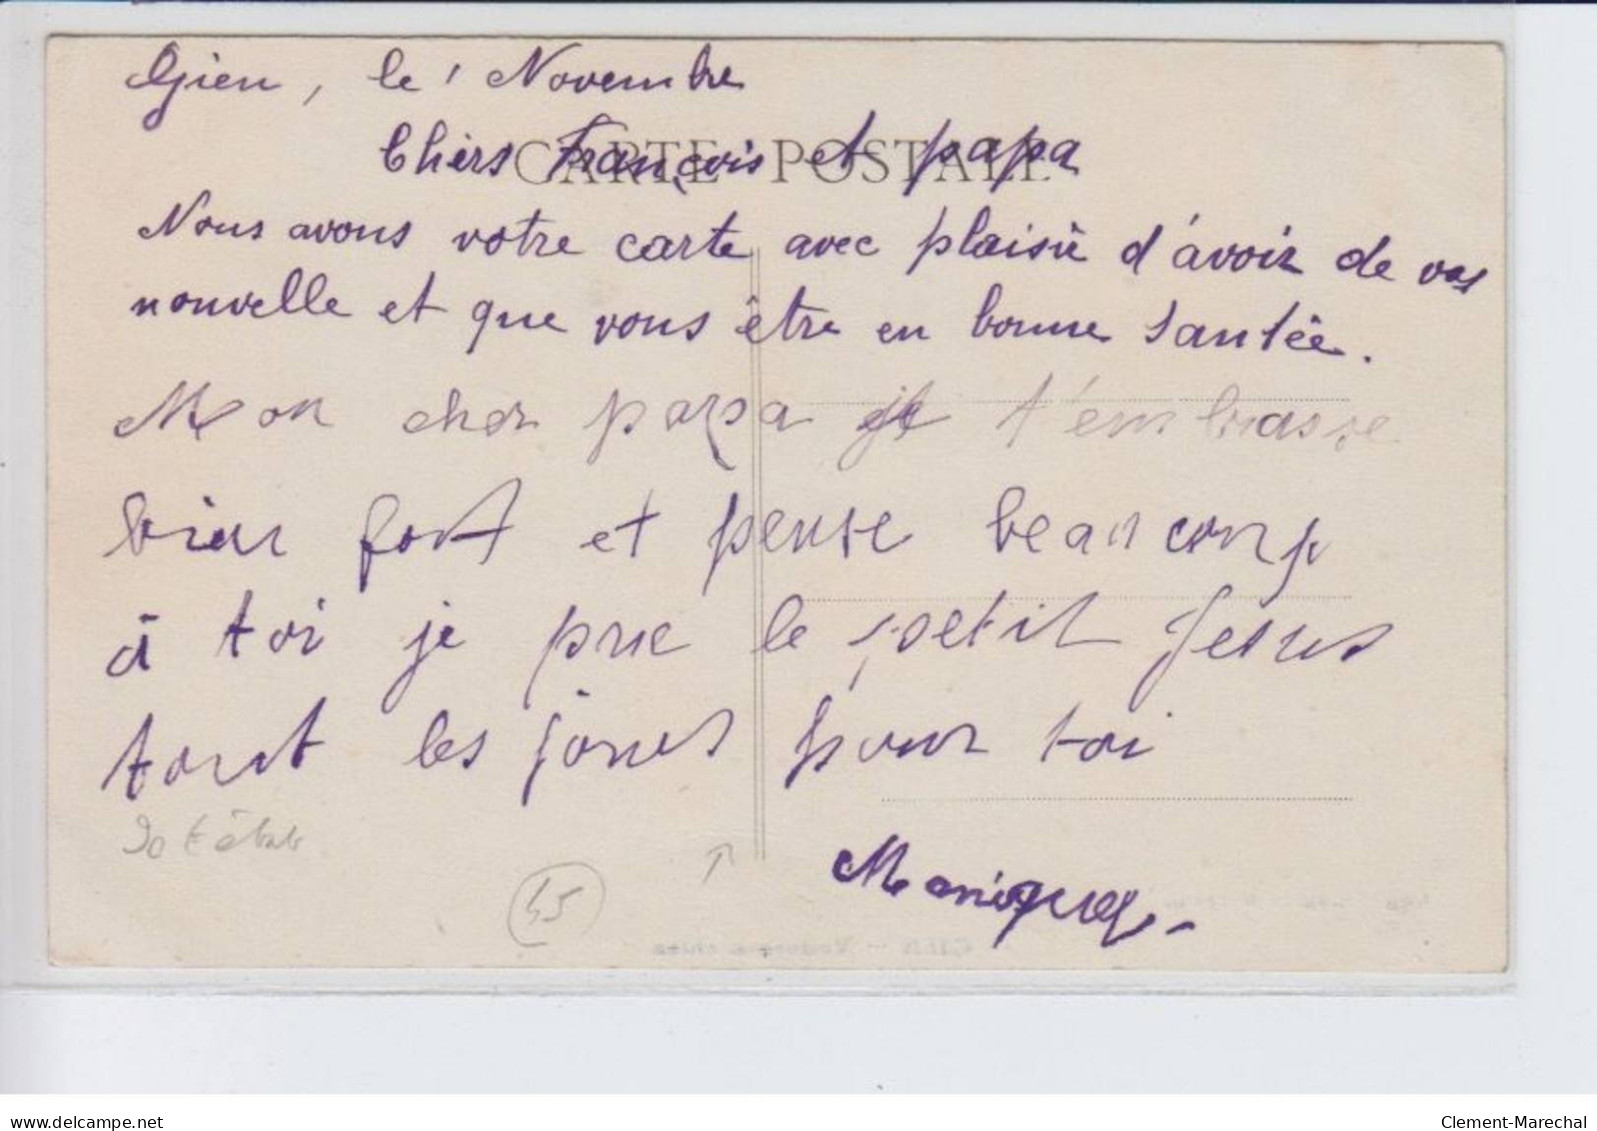 Gien, le 1 Novembre
CARTE POSTALE
Chèrs François et papa
Nous avons votre carte avec plaisir d'avoir de vos
nouvelle et que vous être en bonne santée.
Mon cher papa je t'embrasse
bien fort et pense beaucoup
à toi je prie le petit Jesus
tout les jours pour toi
Monique
45
delcampe.net
Clement-Marechal